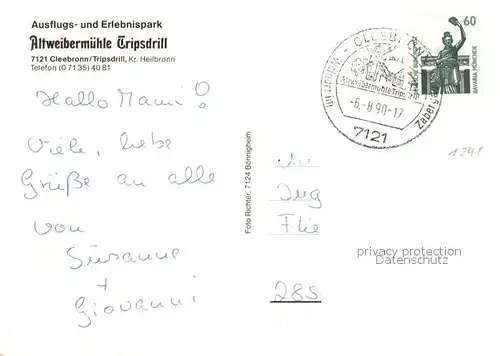 Ausflugs- und Erlebnispark
Altweibermühle Tripsdrill
7121 Cleebronn/Tripsdrill, Kr. Heilbronn
Telefon (0 71 35) 40 81
Hallo Mami!
Viele, liebe
Grüße an alle
von
Susanne
+
Giovanni
Foto Richter, 7124 Bönnigheim
CLEEBRONN
Altweibermühle Trips
-6.-8 90-17
7121
60
BAVARIA MÜNCHEN
1341
An
Ing
Flie
285
privacy protection
Datenschutz